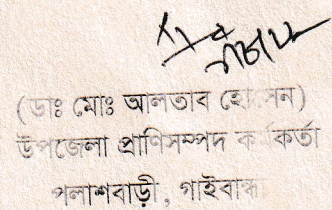 (ডাঃ মোঃ আলতাব হোসেন)
উপজেলা প্রাণিসম্পদ কর্মকর্তা
পলাশবাড়ী, গাইবান্ধা